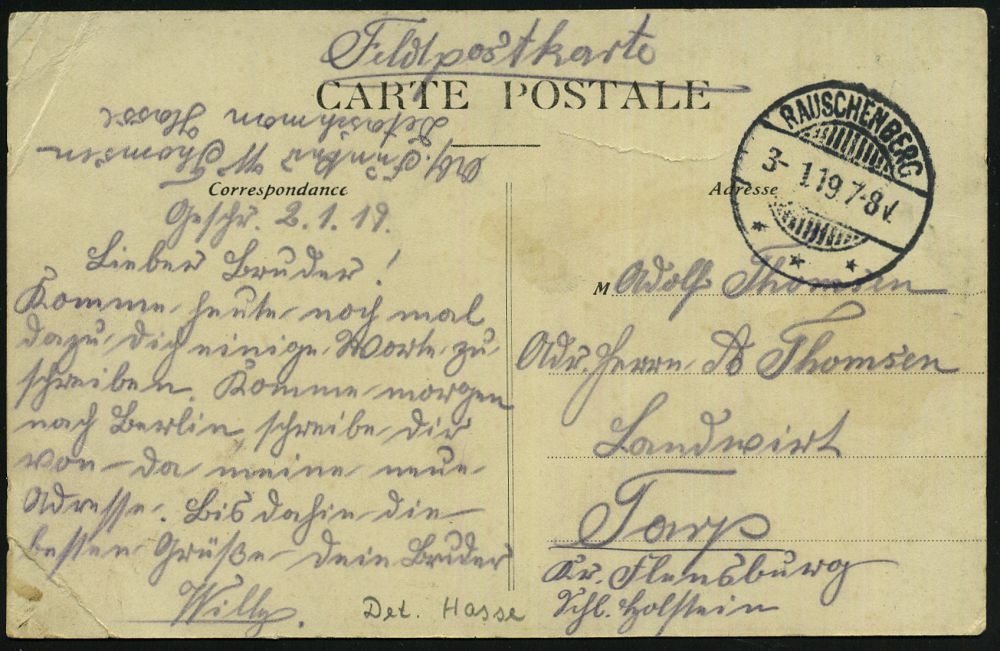 Feldpostkarte
CARTE POSTALE
RAUSCHENBERG
3- 1.19.7-8V.
Abs. Funker W Thomsen
Detaschman Hasse
Correspondance
Adresse
Geschr. 2.1.19.
Lieber Bruder!
Komme heute noch mal
dazu, dich einige Worte zu
schreiben. Komme morgen
nach Berlin schreibe dir
von da meine neue
Adresse. Bis dahin die
besten Grüße dein Bruder
Willy.
Det. Hasse
M Adolf Thomsen
Adr. Herrn Thomsen
Landwirt
Tarp
Kr. Flensburg
Schl. Holstein